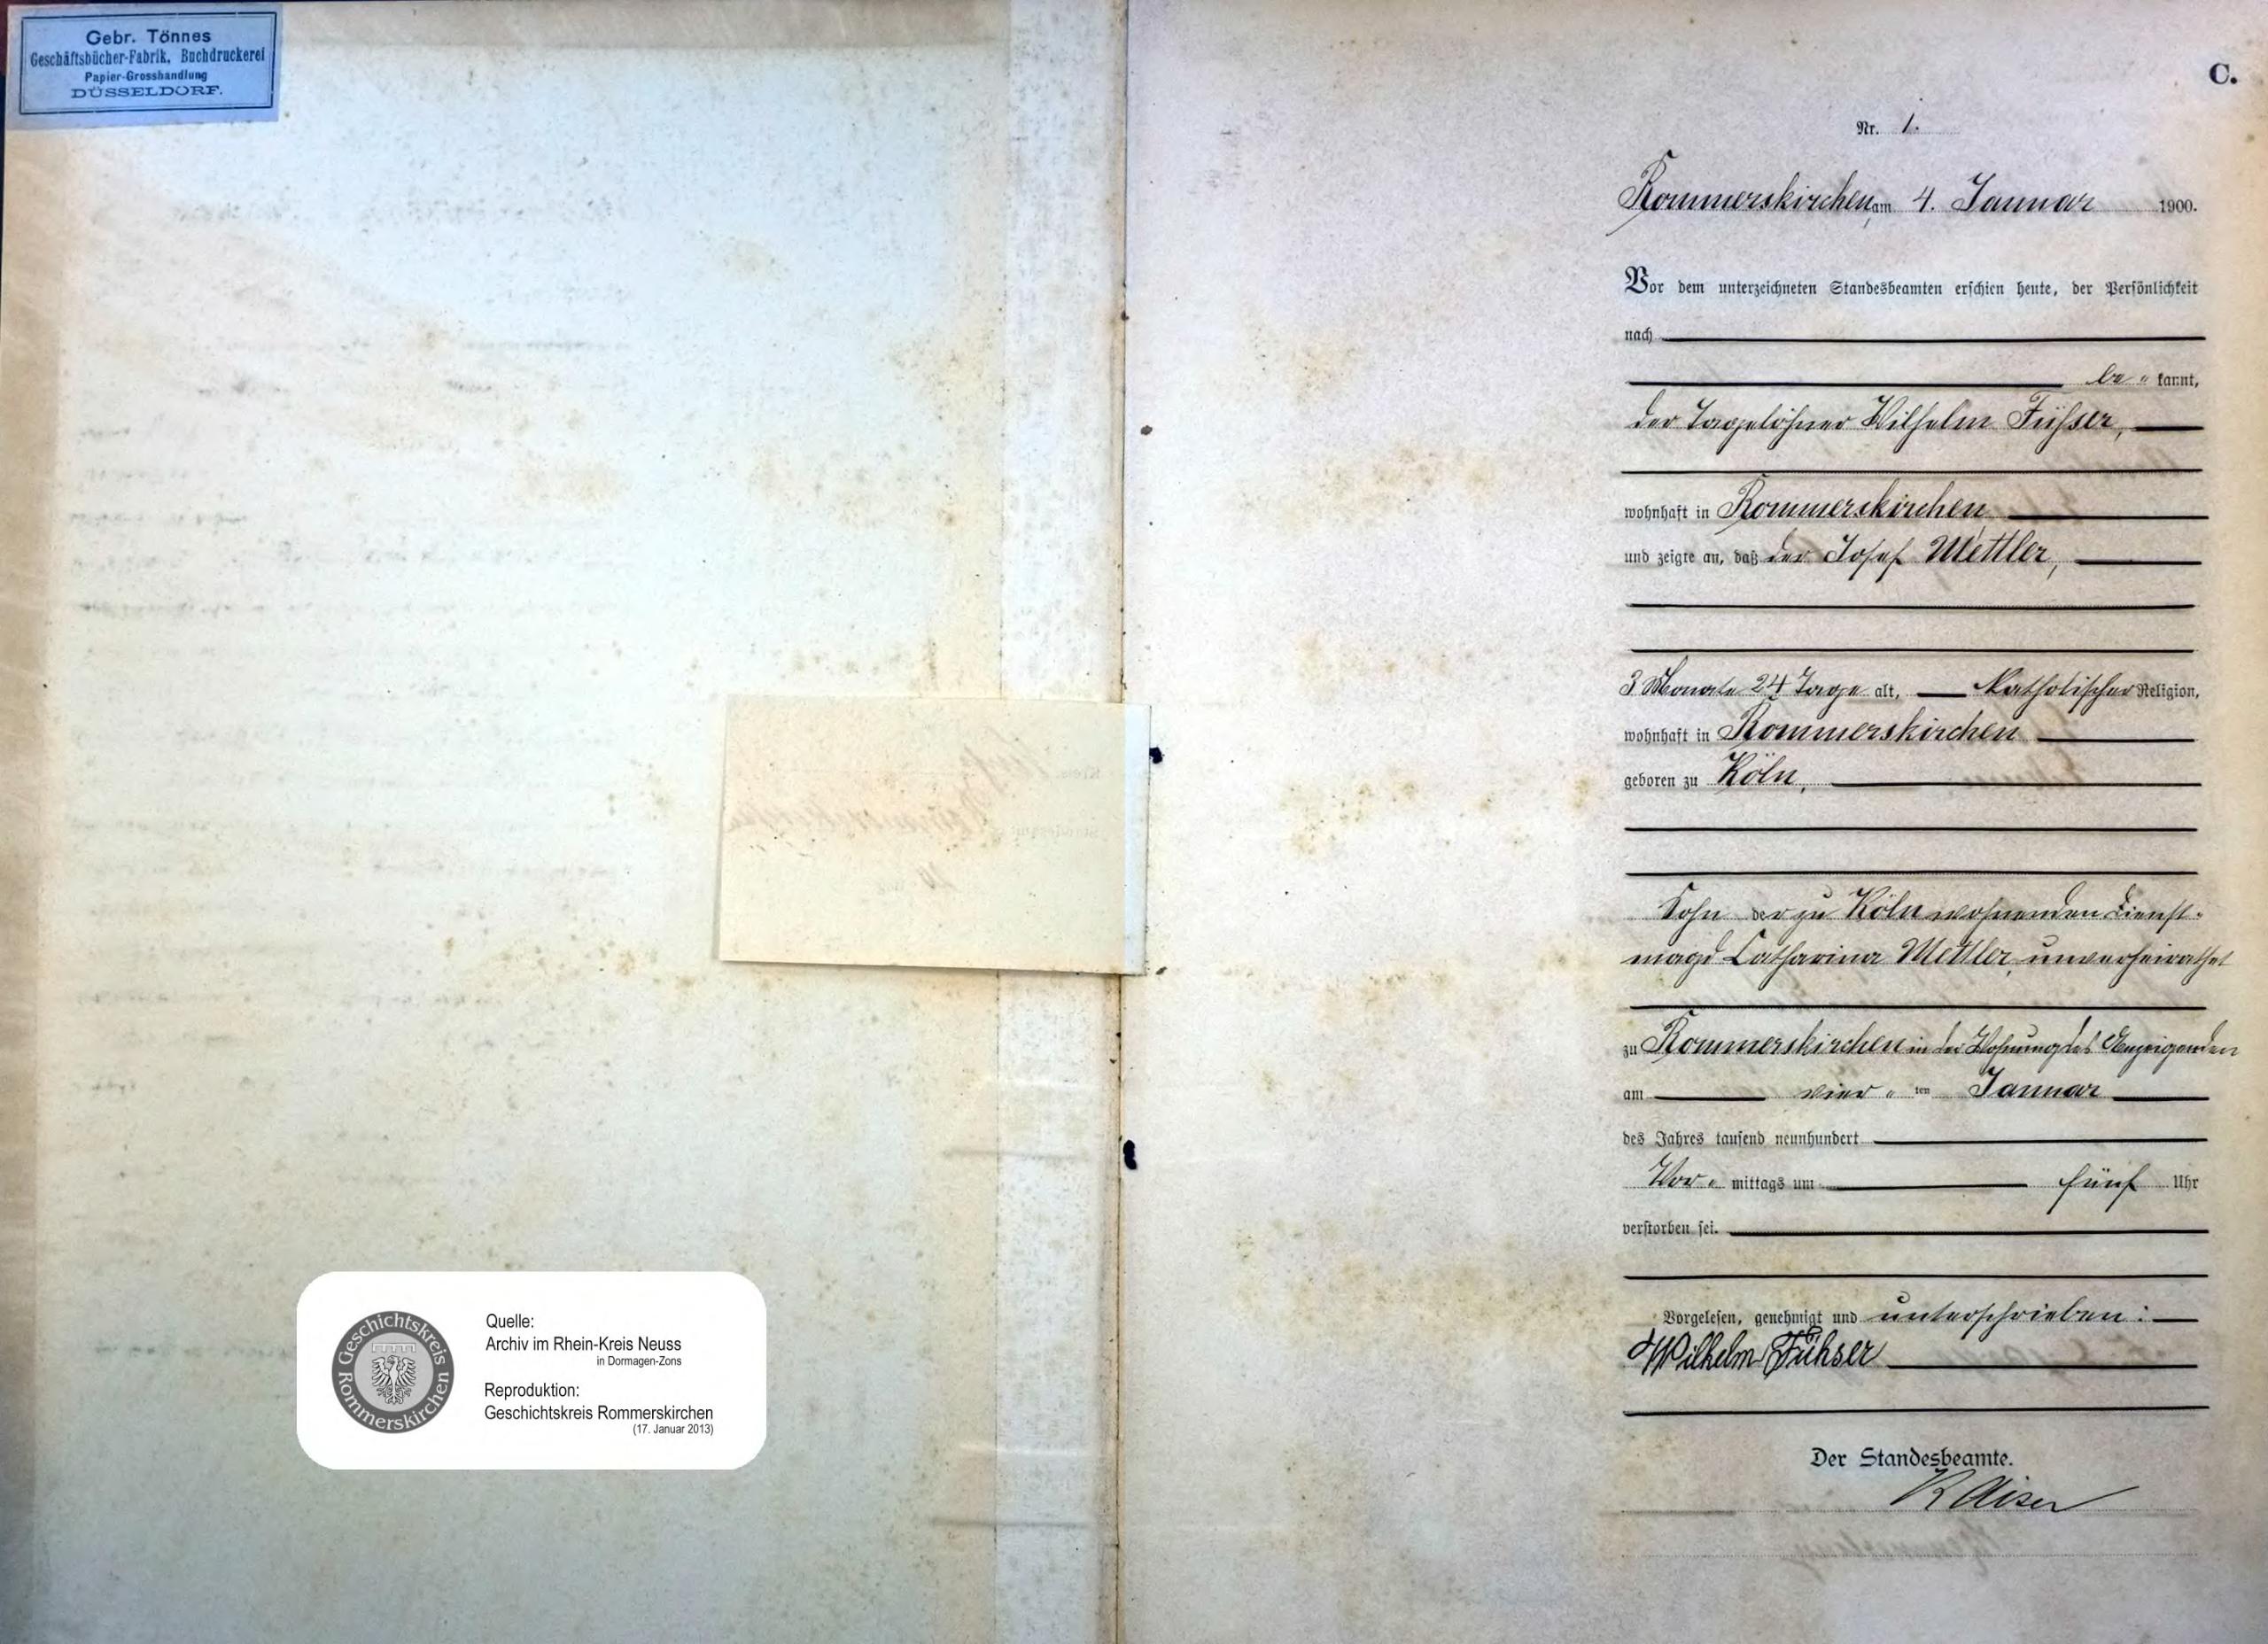 Gebr. Tönnes
Geschäftsbücher-Fabrik, Buchdruckerei
Papier-Grosshandlung
DÜSSELDORF.
C.
Nr. 1.
Rommerskirchen, am 4. Januar 1900.
Vor dem unterzeichneten Standesbeamten erschien heute, der Persönlichkeit
nach
be " kannt,
der Tagelöhner Wilhelm Fühser,
wohnhaft in Rommerskirchen
und zeigte an, daß der Josef Mettler,
3 Monate 24 Tage alt, katholischer Religion,
wohnhaft in Rommerskirchen
geboren zu Köln,
Sohn der zu Köln wohnenden Dienst-
magd Catharina Mettler, unverheirathet
zu Rommerskirchen in der Wohnung des Anzeigenden
am vier " ten Januar
des Jahres tausend neunhundert
Vor " mittags um fünf Uhr
verstorben sei.
Vorgelesen, genehmigt und unterschrieben:
Wilhelm Fühser
Der Standesbeamte.
Kaiser
Geschichtskreis Rommerskirchen
Quelle:
Archiv im Rhein-Kreis Neuss
in Dormagen-Zons
Reproduktion:
Geschichtskreis Rommerskirchen
(17. Januar 2013)